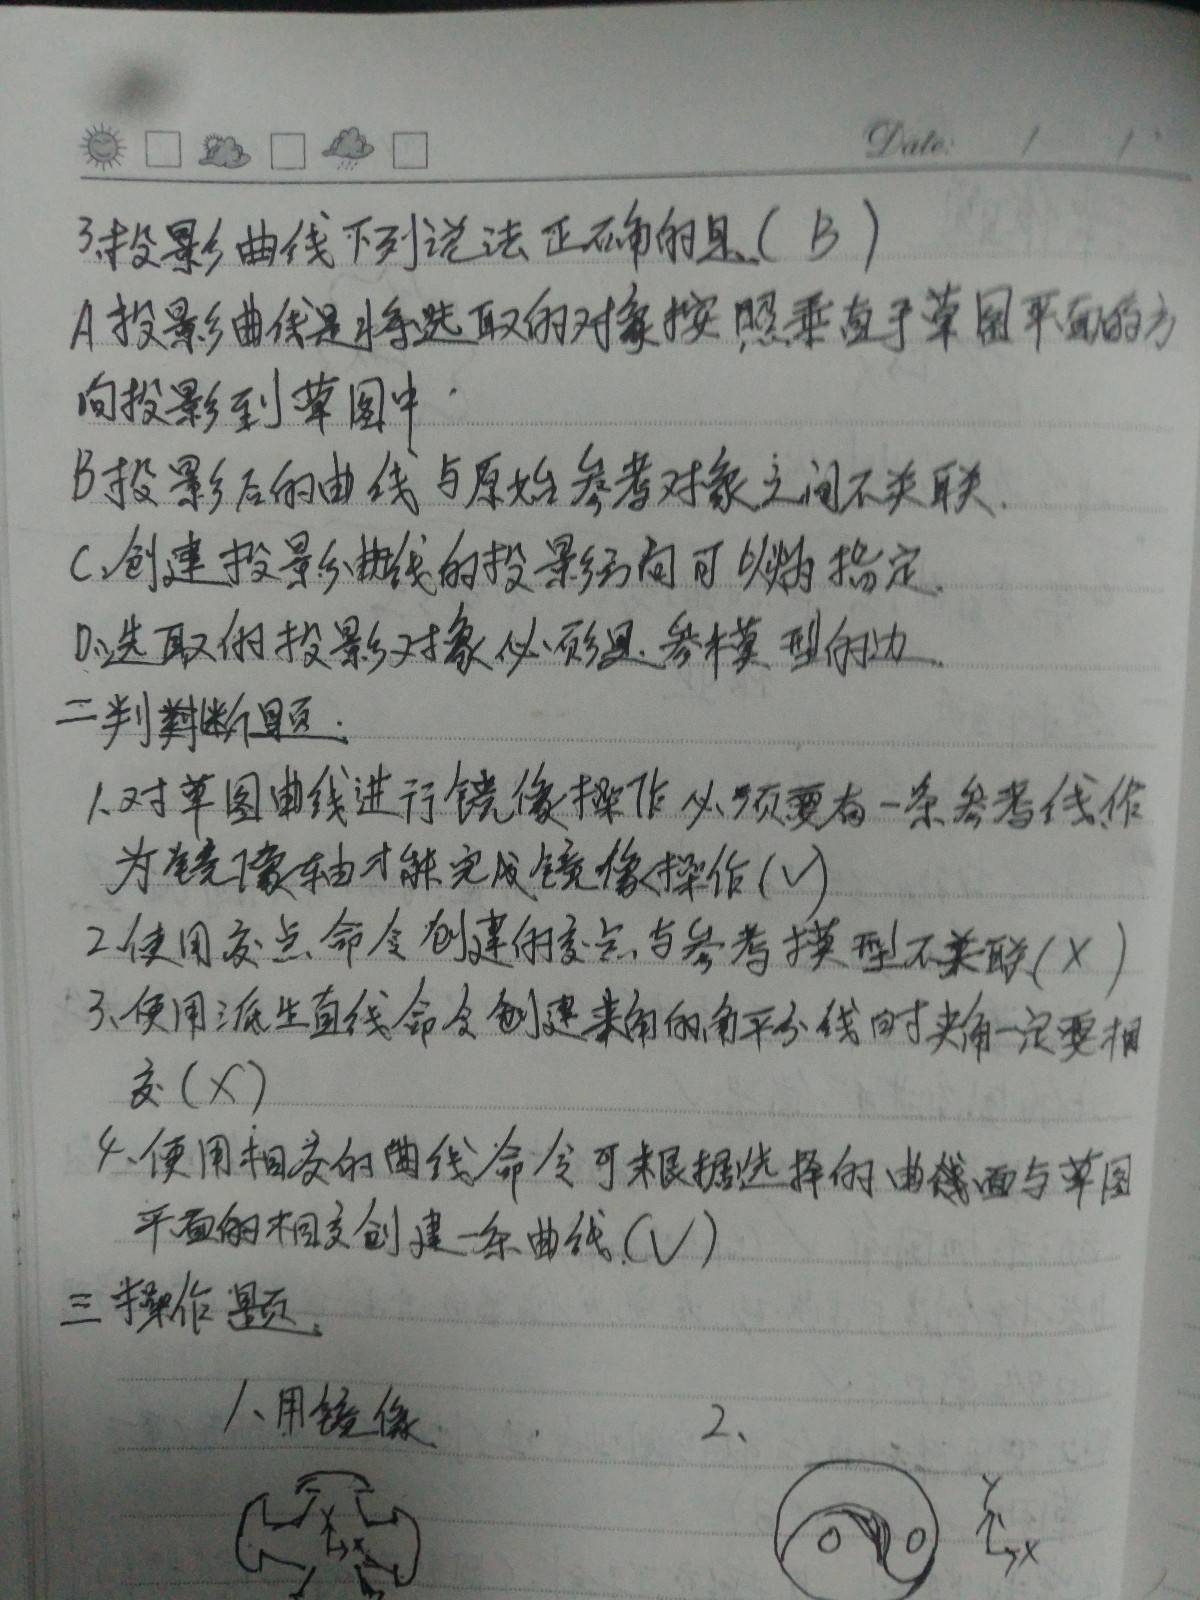 Date: / /
3、投影曲线下列说法正确的是(B)
A投影曲线是将选取的对象按照垂直于草图平面的方
向投影到草图中.
B投影后的曲线与原始参考对象之间不关联.
C、创建投影曲线的投影方向可以 指定.
D、选取的投影对象必须是 模型的边.
二判断题.
1、对草图曲线进行镜像操作必须要有一条参考线作
为镜像轴才能完成镜像操作(√)
2、使用交点命令创建的交点与参考模型不关联(X)
3、使用派生直线命令创建夹角的角平分线时夹角一定要相
交(X)
4、使用相交的曲线命令可根据选择的曲线面与草图
平面的相交创建一条曲线(√)
三操作题.
1、用镜像 2、
Y Y
X X